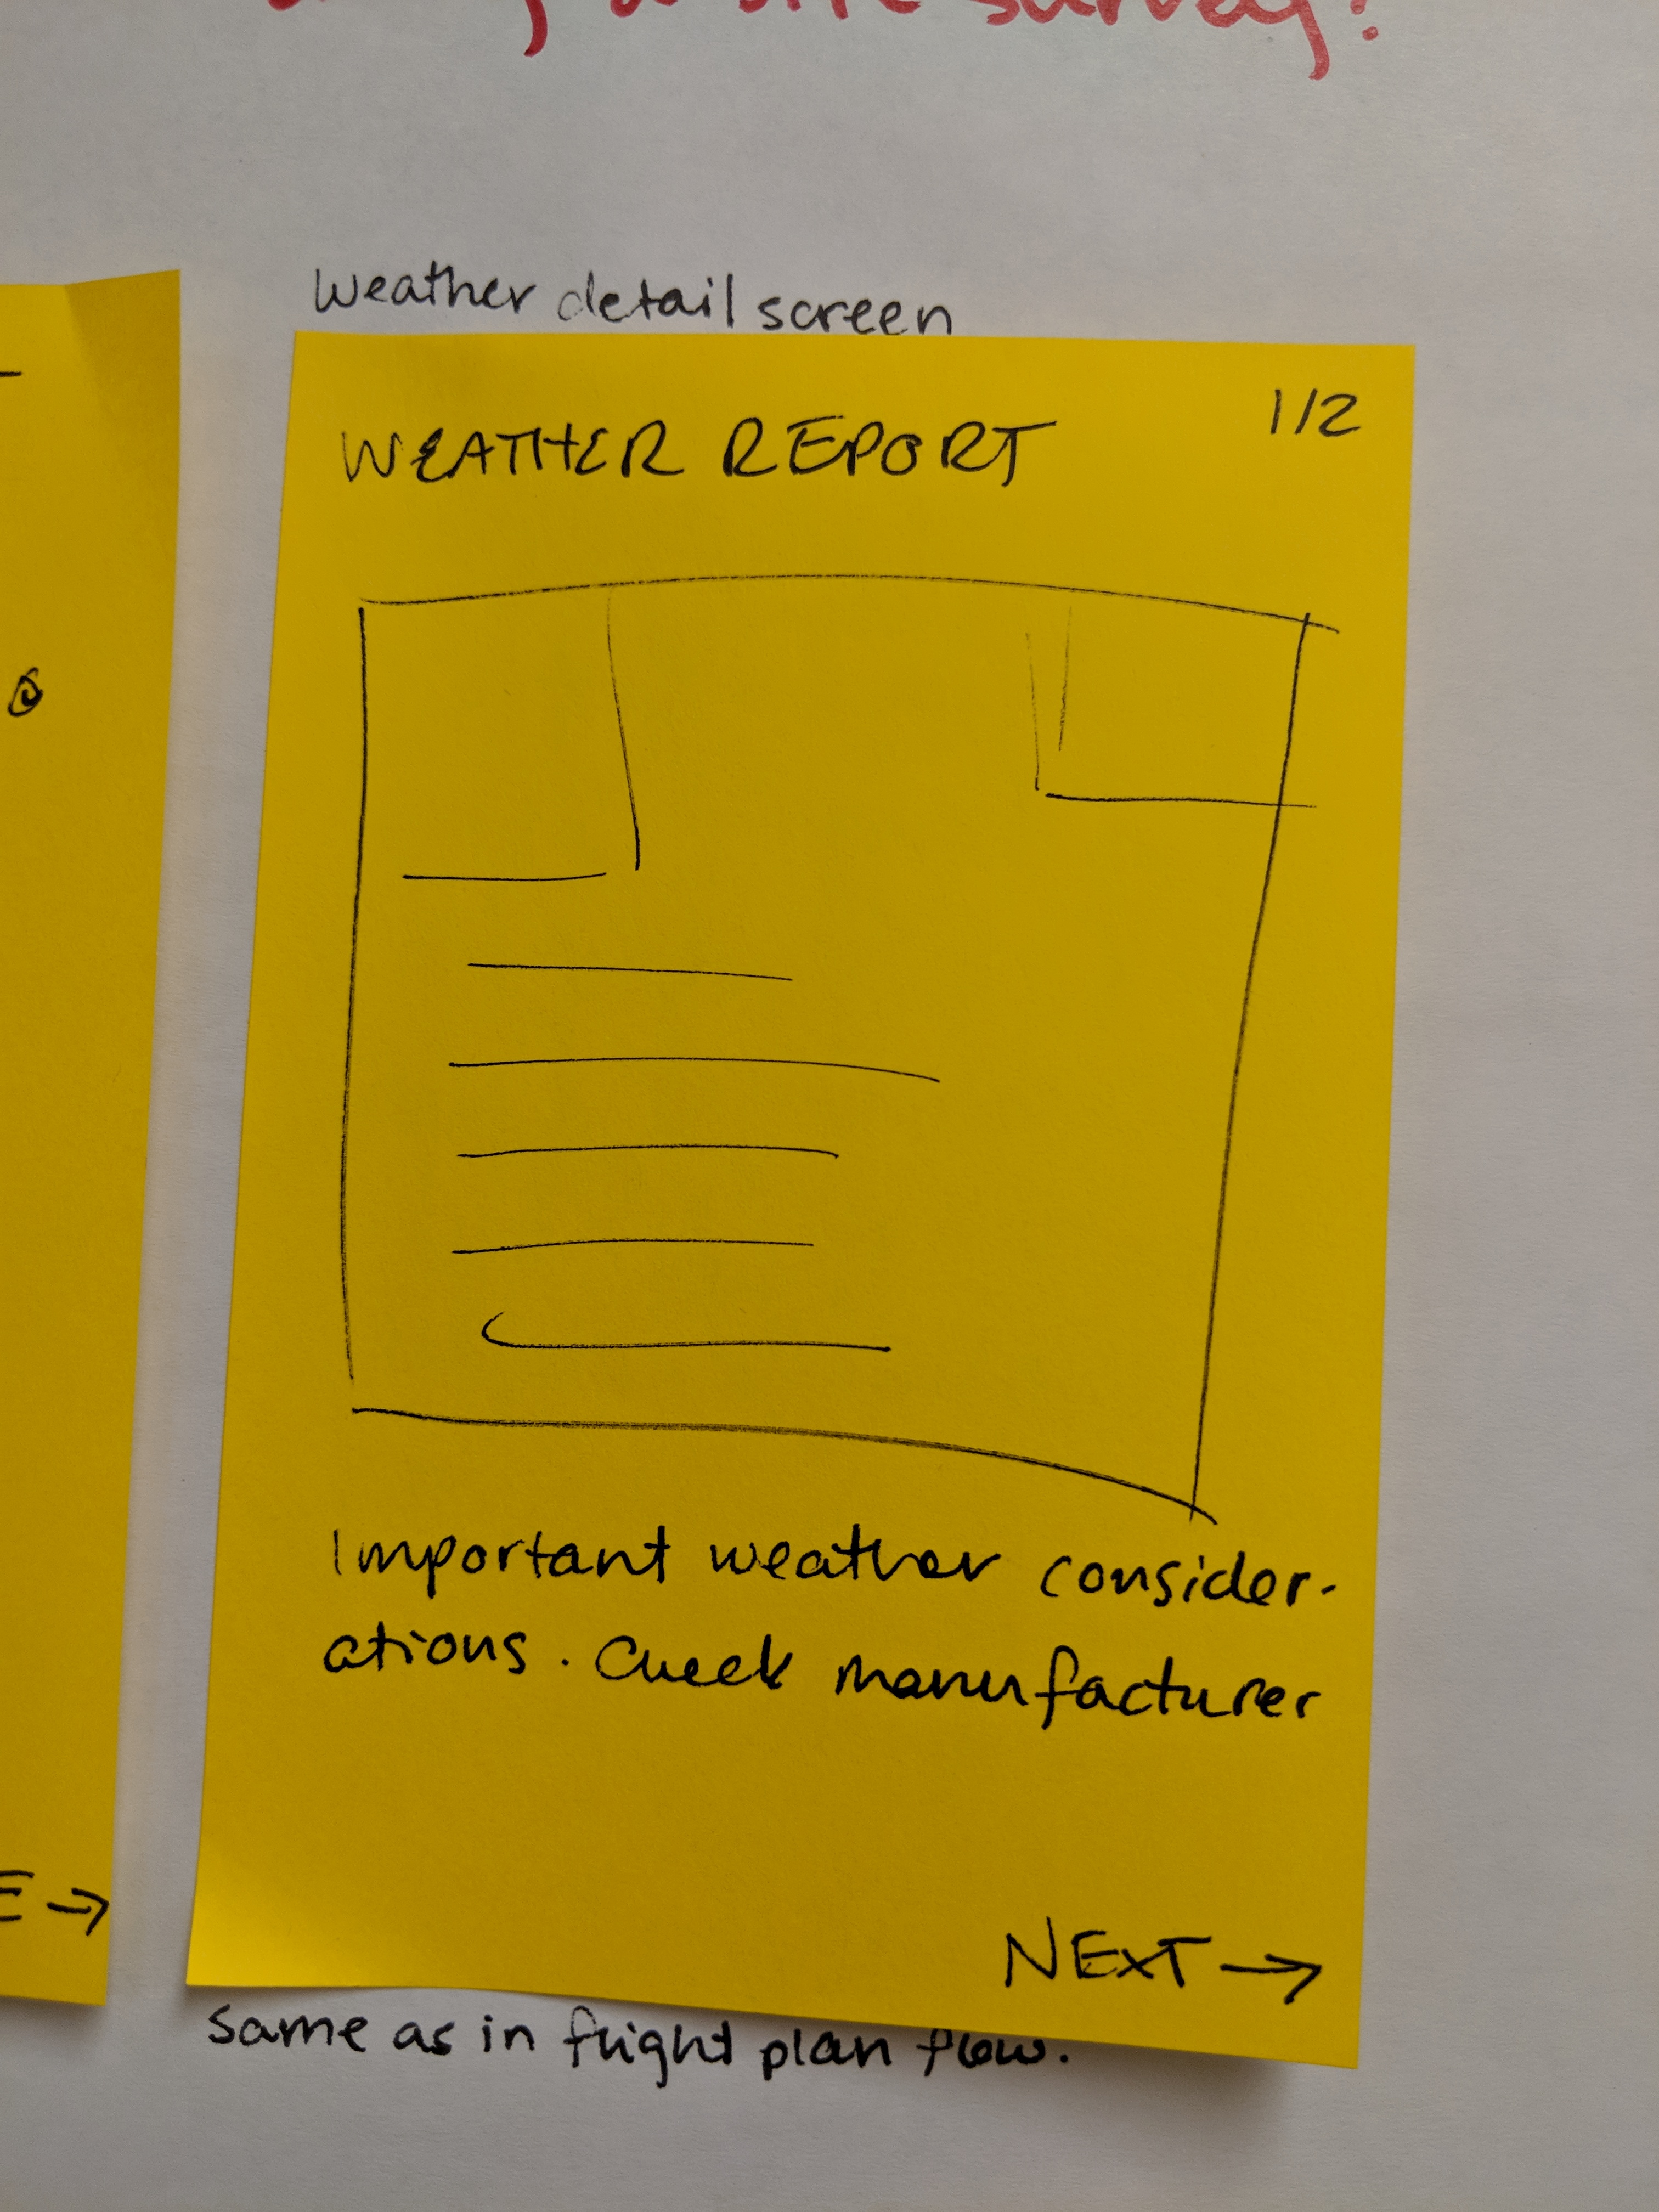 a site survey?
Weather detail screen
WEATHER REPORT 1/2
Important weather consider-
ations. Check manufacturer
E →
NEXT →
same as in flight plan flow.